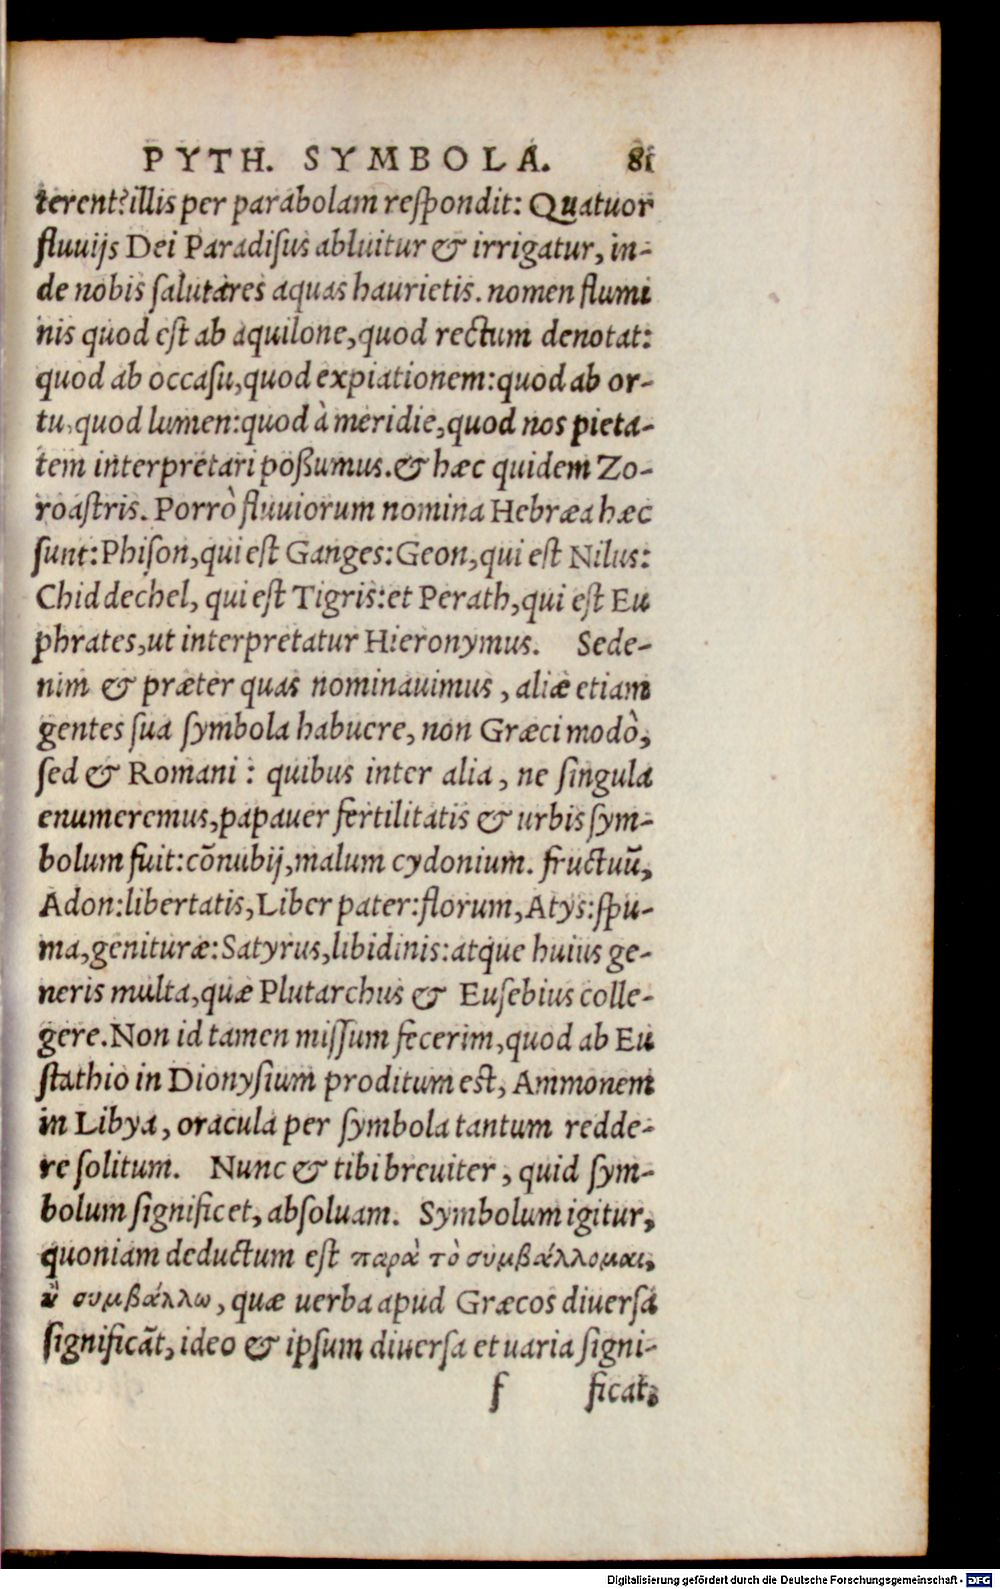 PYTH. SYMBOLA. 81
terent? illis per parabolam reſpondit: Quatuor
fluuijs Dei Paradiſus abluitur & irrigatur, in-
de nobis ſalutares aquas haurietis. nomen flumi
nis quod eſt ab aquilone, quod rectum denotat:
quod ab occaſu, quod expiationem: quod ab or-
tu, quod lumen: quod à meridie, quod nos pieta-
tem interpretari poßumus. & hæc quidem Zo-
roaſtris. Porrò fluuiorum nomina Hebræa hæc
ſunt: Phiſon, qui eſt Ganges: Geon, qui eſt Nilus:
Chiddechel, qui eſt Tigris: et Perath, qui eſt Eu
phrates, ut interpretatur Hieronymus. Sede-
nim & præter quas nominauimus, aliæ etiam
gentes ſua ſymbola habuere, non Græci modò,
ſed & Romani: quibus inter alia, ne ſingula
enumeremus, papauer fertilitatis & urbis ſym-
bolum fuit: cõnubij, malum cydonium. fructuũ,
Adon: libertatis, Liber pater: florum, Atys: ſpu-
ma, genituræ: Satyrus, libidinis: atque huius ge-
neris multa, quæ Plutarchus & Euſebius colle-
gere. Non id tamen miſſum fecerim, quod ab Eu
ſtathio in Dionyſium proditum eſt, Ammonem
in Libya, oracula per ſymbola tantum redde-
re ſolitum. Nunc & tibi breuiter, quid ſym-
bolum ſignificet, abſoluam. Symbolum igitur,
quoniam deductum eſt παρὰ τὸ συμβάλλομαι,
ἢ συμβάλλω, quæ uerba apud Græcos diuerſa
ſignificãt, ideo & ipſum diuerſa et uaria ſigni-
f ficat,
Digitalisierung gefördert durch die Deutsche Forschungsgemeinschaft - DFG